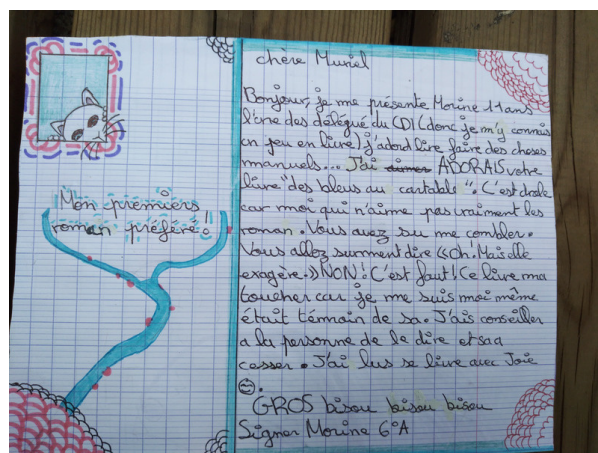 Mon premiers
roman préféré!
chère Muriel
Bonjour, je me présente Morine 11 ans
l'une des délégué du CDI (donc je m'y connais
un peu en livre) j'adord lire faire des choses
manuels... J'ai aimer ADORAIS votre
livre "des bleus au cartable". C'est drole
car moi qui n'aime pas vraiment les
roman. Vous avez su me combler.
Vous allez surment dire «Oh! Mais elle
exagère.» NON! C'est faut! Ce livre ma
toucher car je me suis moi même
était témoin de sa. J'ais conseiller
a la personne de le dire et sa a
cesser. J'ai lus se livre avec Joie
GROS bisou bisou bisou
Signer Morine 6°A